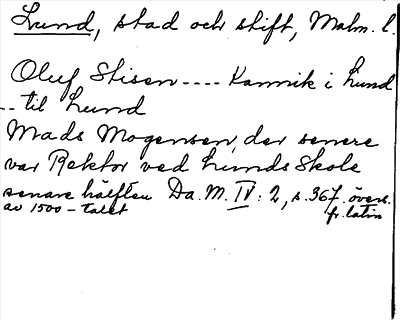 Lund, stad och stift, Malm. l.
Oluf Stisen---- Kannik i Lund
-- til Lund
Mads Mogensen, der senere
var Rektor ved Lunds Skole
senare hälften Da. M. IV: 2, s. 367. övers.
av 1500-talet fr. latin